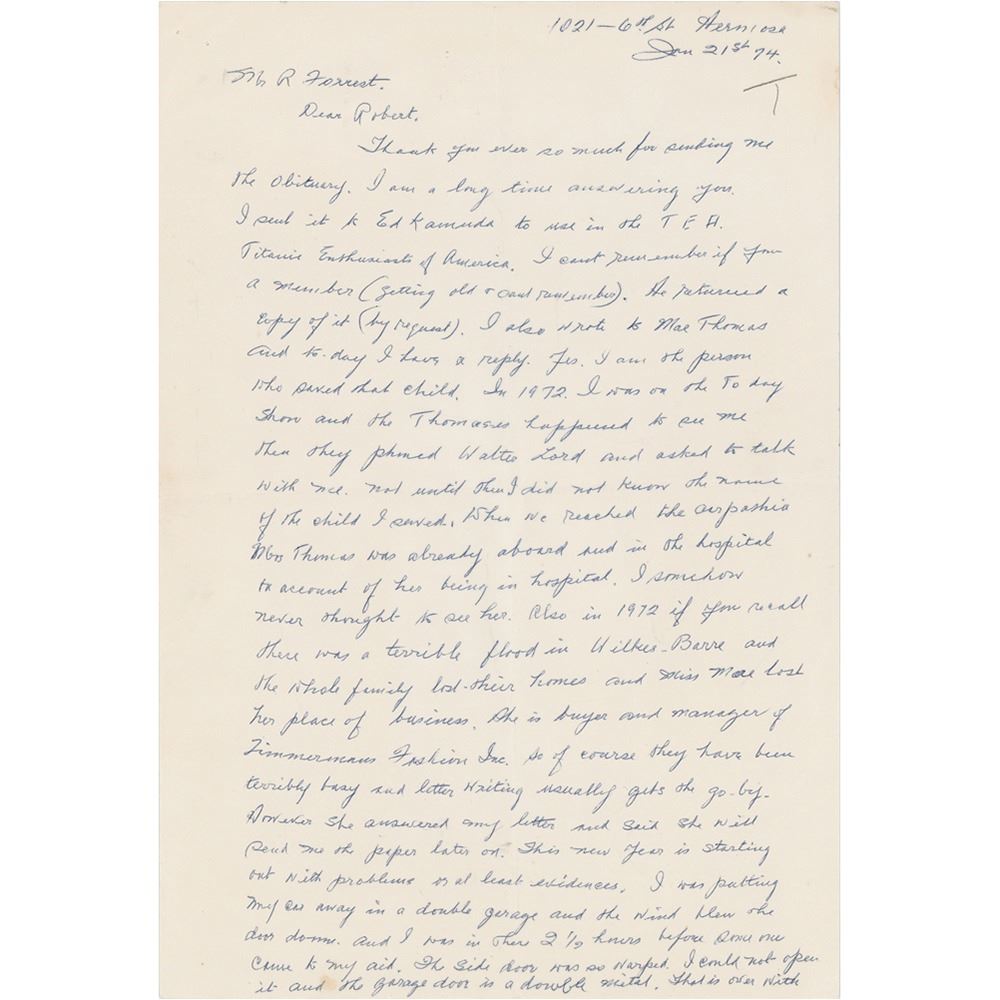 1021-6th St Hermosa
Jan 21st 74.
T
Mr R Forrest.
Dear Robert.
Thank you ever so much for sending me
the obituary. I am a long time answering you.
I sent it to Ed Kamuda to use in the T E A.
Titanic Enthusiasts of America. I cant remember if you
a member (getting old & cant remember). He returned a
copy of it (by request). I also wrote to Mae Thomas
and to-day I have a reply. Yes. I am the person
who saved that child. In 1972. I was on the To day
Show and the Thomases happened to see me
then they phoned Walter Lord and asked to talk
with me. not until then I did not know the name
of the child I saved. When we reached the carpathia
Mrs Thomas was already aboard and in the hospital
on account of her being in hospital. I somehow
never thought to see her. Also in 1972 if you recall
there was a terrible flood in Wilkes-Barre and
the whole family lost their homes and Miss Mae lost
her place of business. She is buyer and manager of
Zimmermans Fashion Inc. so of course they have been
terribly busy and letter writing usually gets the go-by.
However she answered my letter and said she will
send me the paper later on. This new year is starting
out with problems or at least evidences. I was putting
my car away in a double garage and the wind blew the
door down. and I was in there 2 1/2 hours before some one
came to my aid. The side door was so warped. I could not open
it and the garage door is a double metal. That is over with